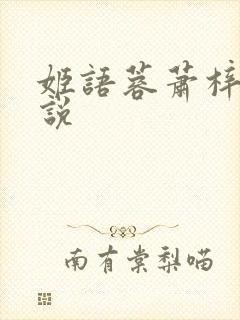 姬語蓉蕭梓
說
南有棠梨喵